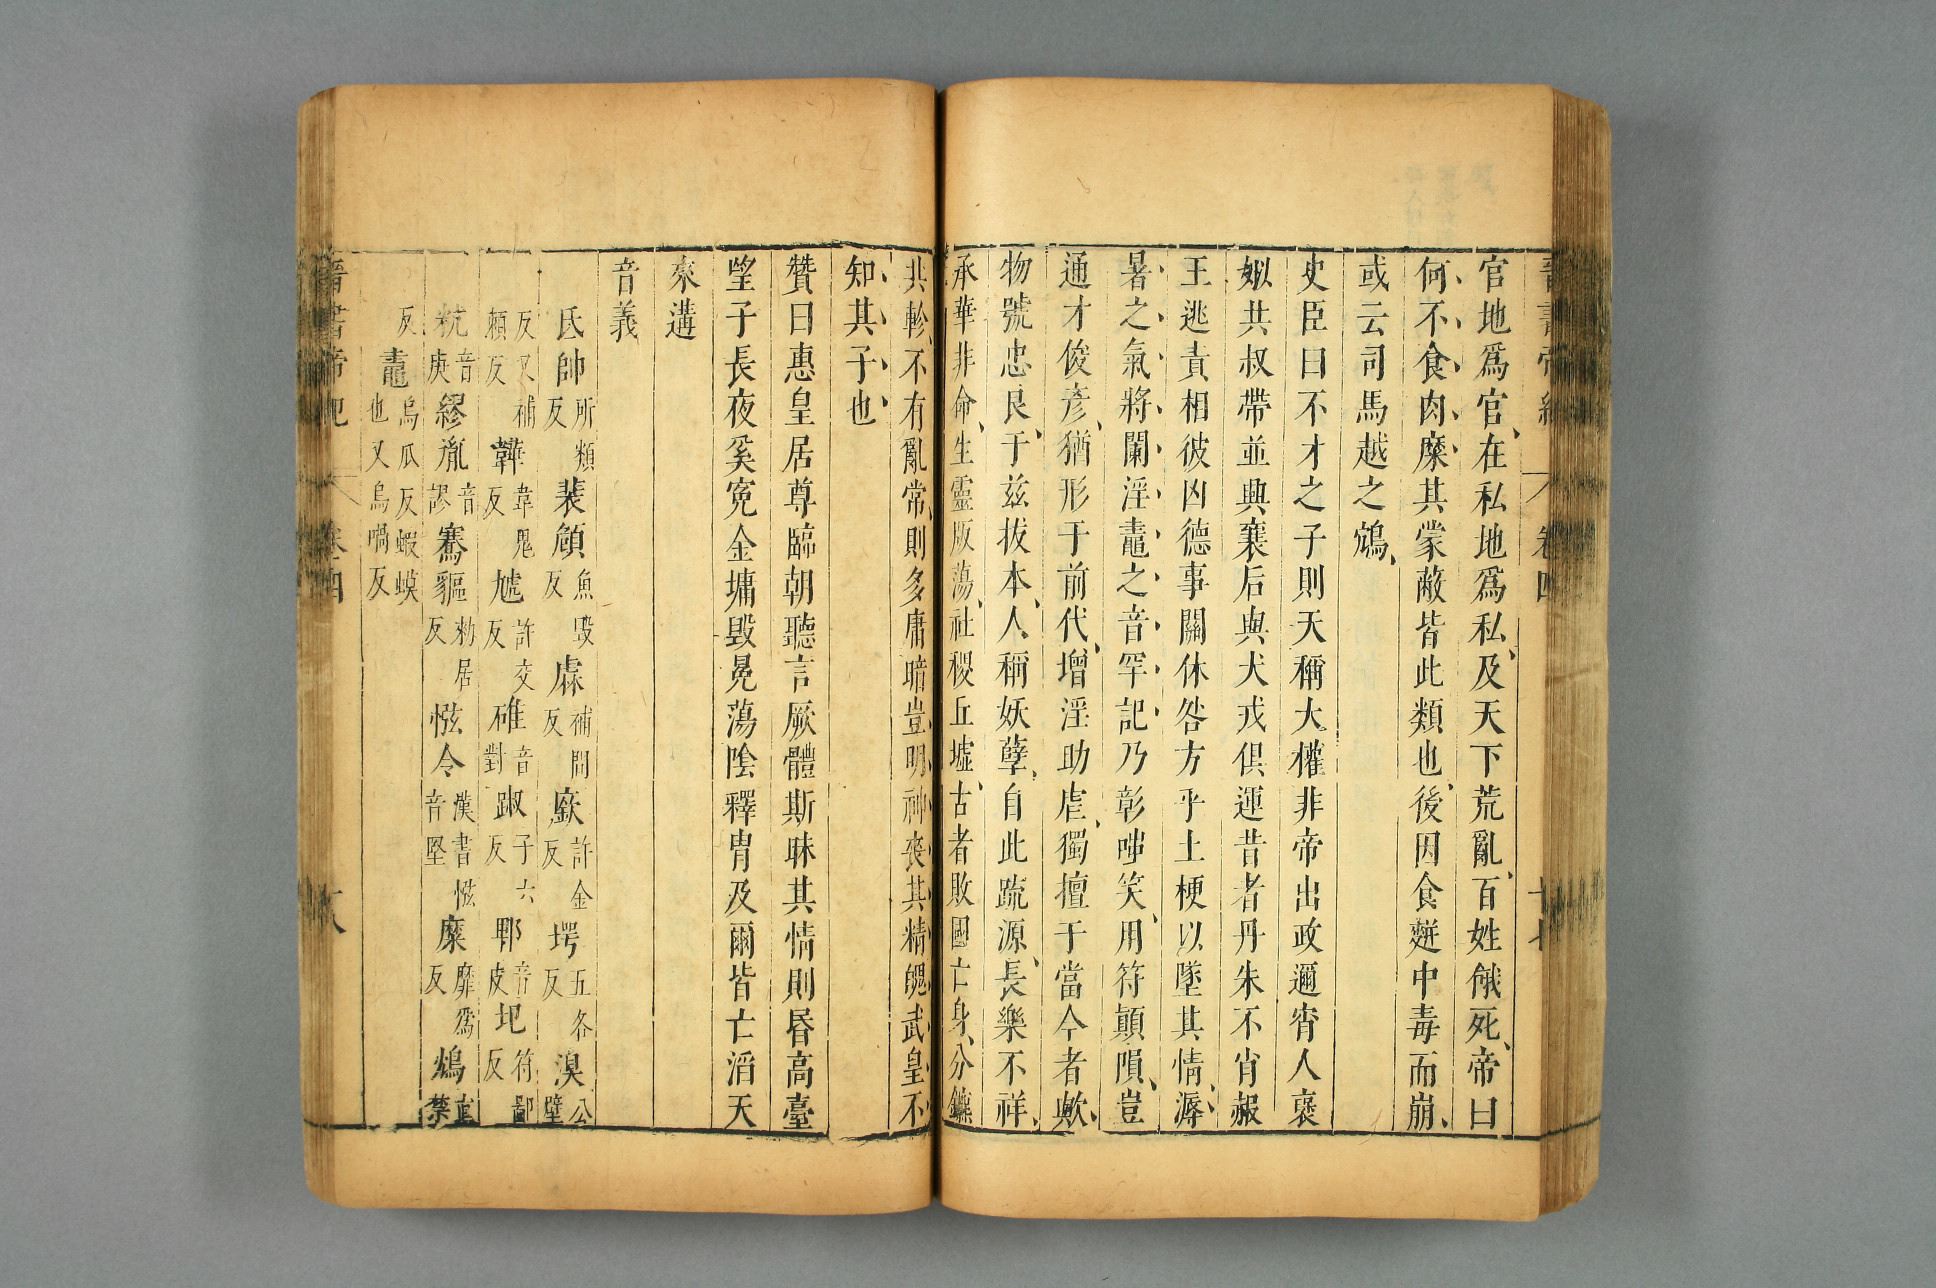 晉書帝紀 卷四 廿七
官地爲官在私地爲私及天下荒亂百姓餓死帝曰
何不食肉糜其蒙蔽皆此類也後因食䴵中毒而崩
或云司馬越之鴆
史臣曰不才之子則天稱大權非帝出政邇宵人襃
姒共叔帶並興襄后與犬戎俱運昔者丹朱不肖赧
王逃責相彼凶德事關休咎方乎土梗以墜其情溽
暑之氣將闌淫鼃之音罕記乃彰嗤笑用符顛隕豈
通才俊彦猶形于前代增淫助虐獨擅于當今者歟
物號忠良于兹拔本人稱妖孽自此疏源長樂不祥
承華非命生靈版蕩社稷丘墟古者敗國亡身分鑣
共軫不有亂常則多庸暗豈明神喪其精魄武皇不
知其子也
贊曰惠皇居尊臨朝聽言厥體斯昧其情則昬高臺
望子長夜奚寃金墉毁冕蕩陰釋胄及爾皆亡滔天
來遘
音義
氐帥所類反裴頠魚毁反虨補間反廞許金反堮五各反湨公壁
反又補頼反鞾韋鬼反虓許交反碓音對踧子六反郫音皮圯符鄙反
秔音庚繆胤音謬騫驅勑居反惤令漢書惤音堅糜靡爲反鴆直禁
反鼃烏瓜反蝦蟆也又烏喎反
晉書帝紀 卷四 廿八